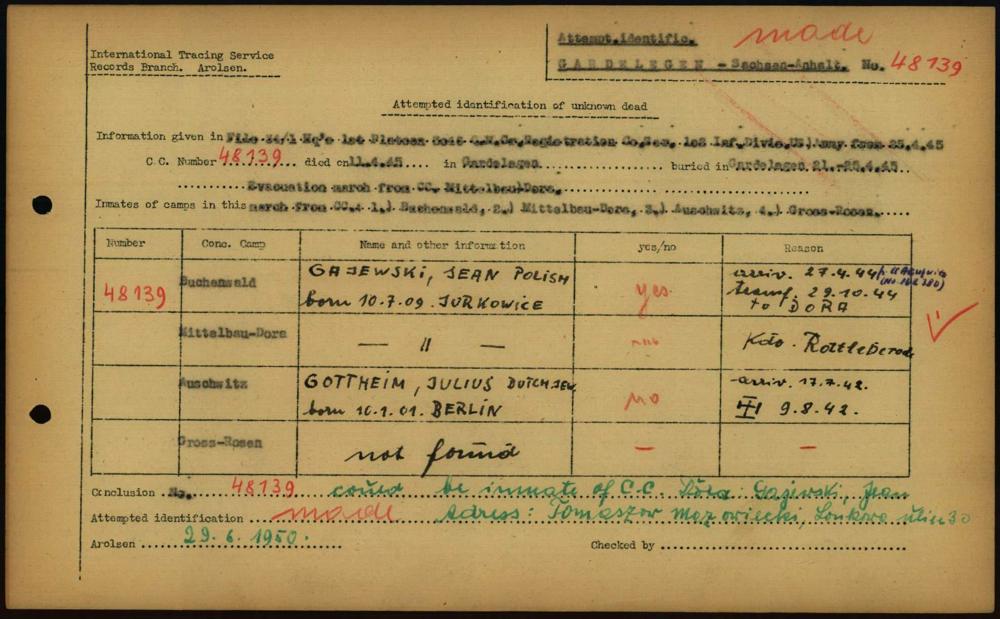 International Tracing Service
Records Branch. Arolsen.
Attempt.identific. made
GARDELEGEN - Sachsen-Anhalt. No. 48139
Attempted identification of unknown dead
Information given in File 1st Platoon Registration 102 Inf. Divis. US) Army from 25.4.45
C.C. Number 48139 died on 11.4.45 in Gardelegen buried in Gardelegen 21.-25.4.45
Evacuation march from CC. Mittelbau/Dora.
Inmates of camps in this march from CC. 1.) Buchenwald, 2.) Mittelbau-Dora, 3.) Auschwitz, 4.) Gross-Rosen.
Number Conc. Camp Name and other information yes/no Reason
48139 Buchenwald GAJEWSKI, JEAN POLISH born 10.7.09. JURKOWICE yes. arriv. 27.4.44 transf. 29.10.44 to DORA
Mittelbau-Dora — " — Kdo. Rottleberode
Auschwitz GOTTHEIM, JULIUS DUTCH.JEW. born 10.1.01. BERLIN no arriv. 17.7.42. 9.8.42.
Gross-Rosen not found — —
Conclusion No. 48139 could be inmate of C.C. Dora: Gajewski, Jean
Attempted identification made Adress: Tomaszow Mazowiecki, 30
Arolsen 29.6.1950. Checked by